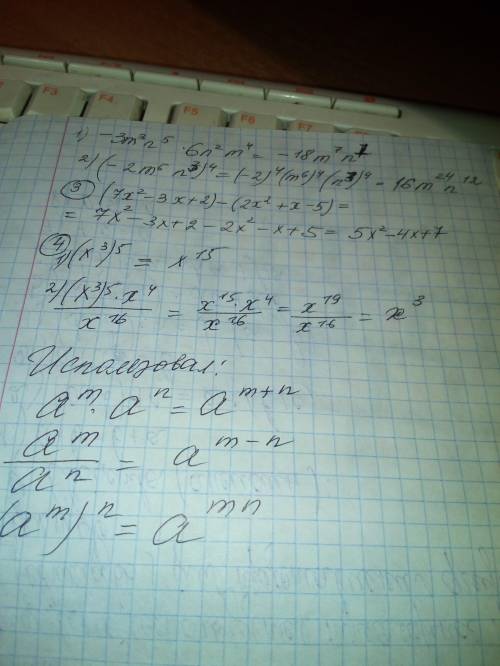 F3 F4 F5 F6 F7 F8
1) -3m³n⁵ · 6n²m⁴ = -18m⁷n⁷
2) (-2m⁶n³)⁴ = (-2)⁴(m⁶)⁴(n³)⁴ = 16m²⁴n¹²
③ (7x²-3x+2)-(2x²+x-5)=
= 7x²-3x+2-2x²-x+5 = 5x²-4x+7
④
1) (x³)⁵ = x¹⁵
2) (x³)⁵·x⁴/x¹⁶ = x¹⁵·x⁴/x¹⁶ = x¹⁹/x¹⁶ = x³
Использовал:
aᵐ · aⁿ = aᵐ⁺ⁿ
aᵐ/aⁿ = aᵐ⁻ⁿ
(aᵐ)ⁿ = aᵐⁿ